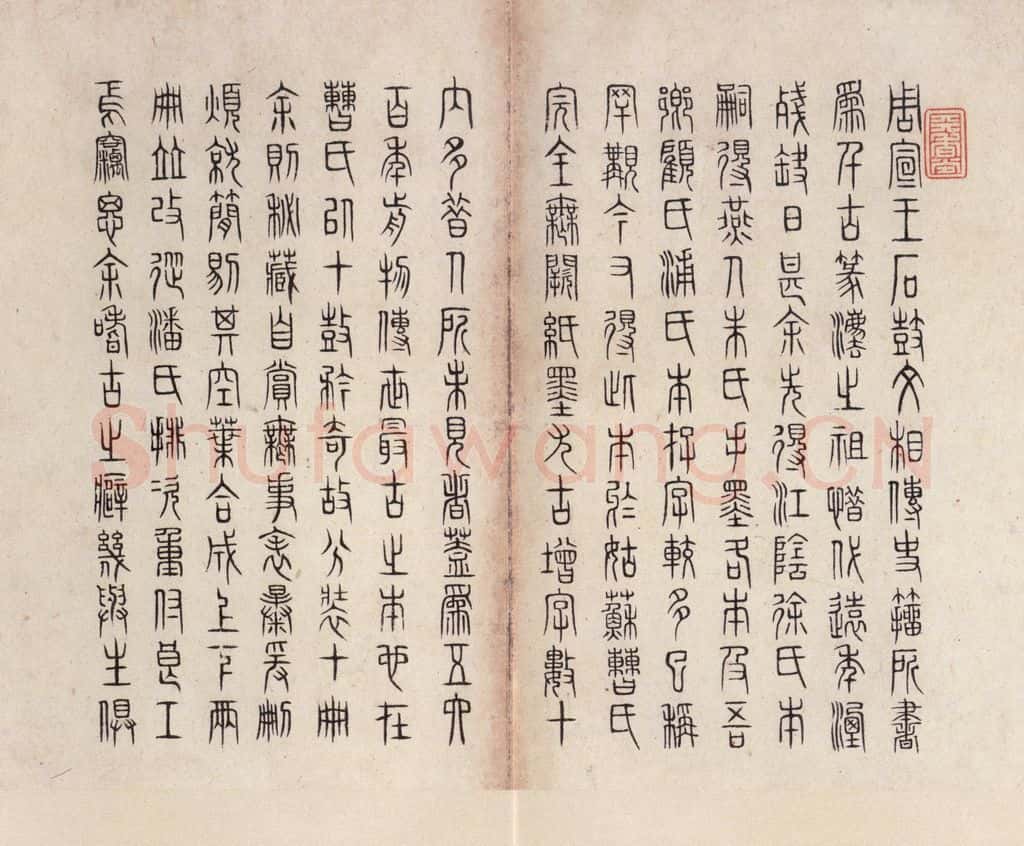 周宣王石鼓文相傳史籀所書
為千古篆法之祖惜代遠年湮
殘缺日甚余先得江陰徐氏本
嗣得燕人朱氏手墨名本及吾
鄉顧氏浦氏本存字較多已稱
罕覯今又得此本於姑蘇曹氏
完全無闕紙墨尤古增字數十
內多昔人所未見者蓋為五六
百年前物傳世最古之本也在
曹氏以十鼓矜奇故分裝十冊
余則秘藏自賞無事表暴爰刪
煩就簡剔其空葉合成上下兩
冊並改從潘氏排次重付良工
焉竊思余嗜古之癖幾與生俱
Shufawang.CN